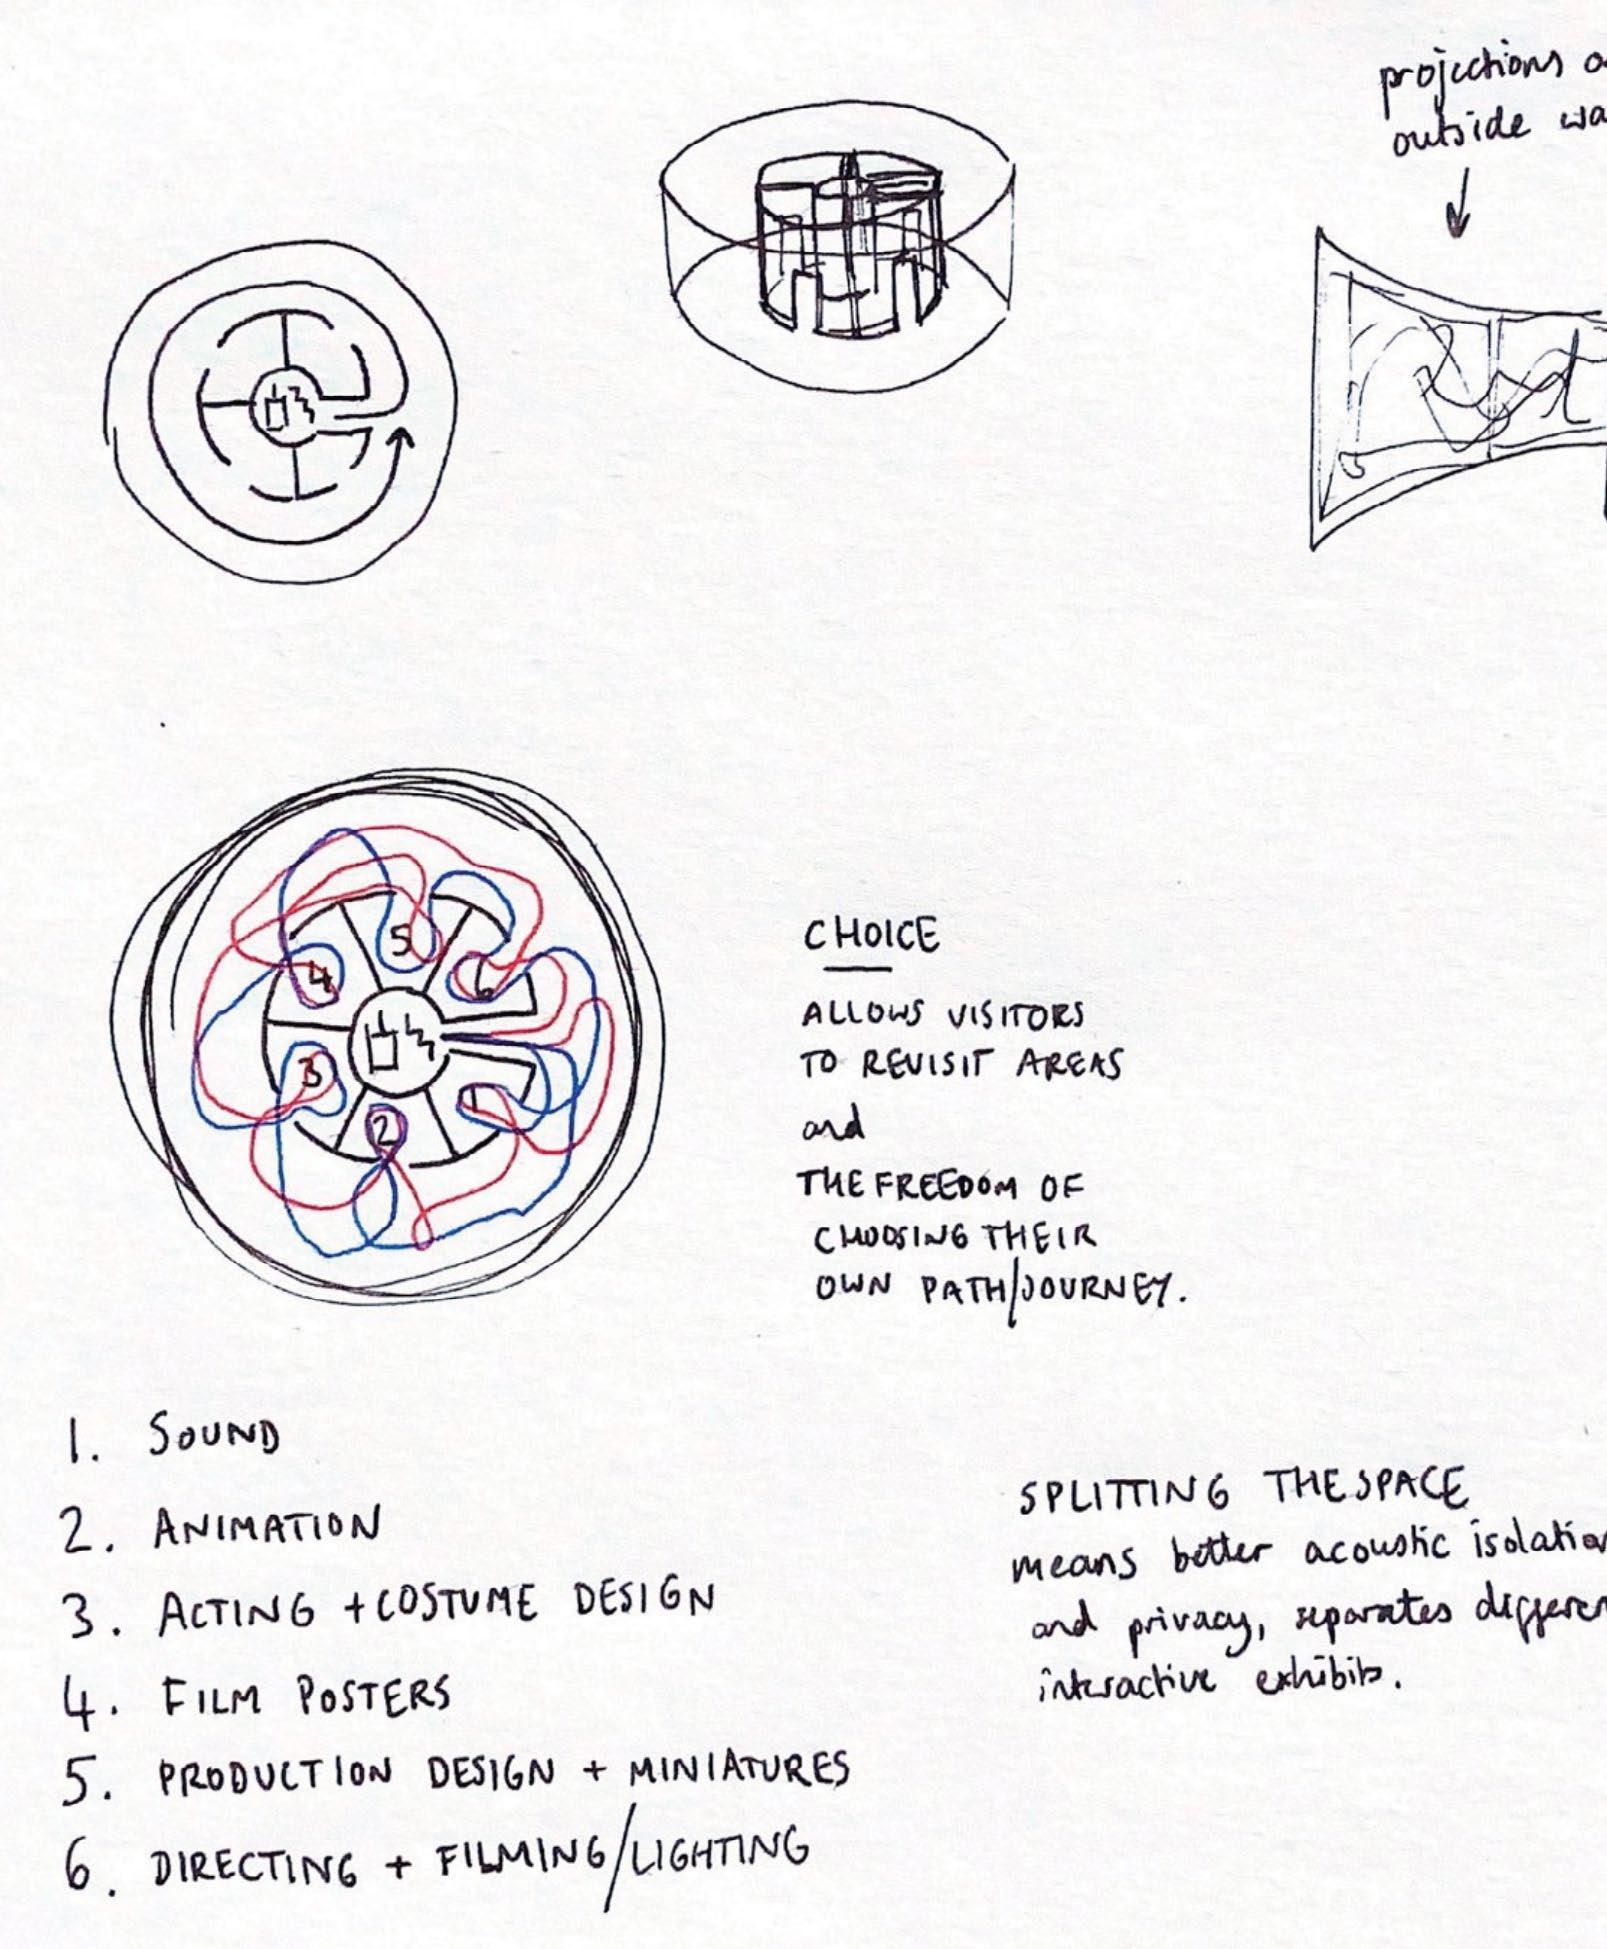 projections
outside
4
5
6
3
1
2
CHOICE
ALLOWS VISITORS
TO REVISIT AREAS
and
THE FREEDOM OF
CHOOSING THEIR
OWN PATH/JOURNEY.
1. SOUND
2. ANIMATION
3. ACTING + COSTUME DESIGN
4. FILM POSTERS
5. PRODUCTION DESIGN + MINIATURES
6. DIRECTING + FILMING/LIGHTING
SPLITTING THE SPACE
means better acoustic isolation
and privacy, separates differen
interactive exhibits.